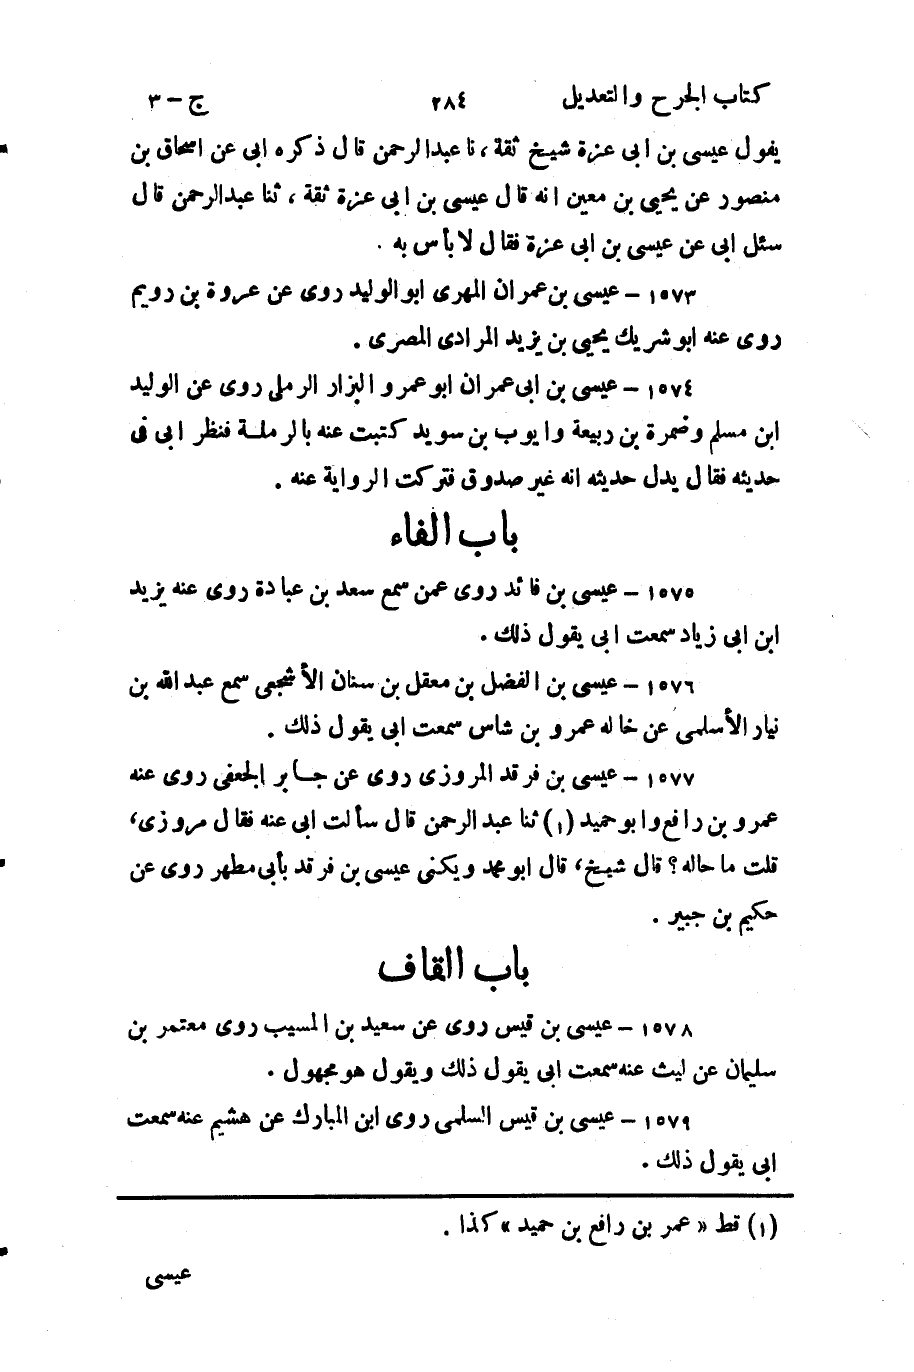 كتاب الجرح والتعديل ٢٨٤ ج – ٣
يقول عيسى بن ابى عزة شيخ ثقة ، نا عبدالرحمن قال ذكره ابى عن اسحاق بن
منصور عن يحيى بن معين انه قال عيسى بن ابى عزة ثقة ، ثنا عبدالرحمن قال
سئل ابى عن عيسى بن ابى عزة فقال لا بأس به .
١٥٧٣ – عيسى بن عمران المهرى ابو الوليد روى عن عروة بن رويم
روى عنه ابو شريك يحيى بن يزيد المرادى المصرى .
١٥٧٤ – عيسى بن ابى عمران ابو عمرو البزار الرملى روى عن الوليد
ابن مسلم وضمرة بن ربيعة وايوب بن سويد كتبت عنه بالرملة فنظر ابى فى
حديثه فقال يدل حديثه انه غير صدوق فتركت الرواية عنه .
باب الفاء
١٥٧٥ – عيسى بن فائد روى عمن سمع سعد بن عبادة روى عنه يزيد
ابن ابى زياد سمعت ابى يقول ذلك .
١٥٧٦ – عيسى بن الفضل بن معقل بن سنان الأشجعى سمع عبد الله بن
نيار الأسلمى عن خاله عمرو بن شاس سمعت ابى يقول ذلك .
١٥٧٧ – عيسى بن فرقد المروزى روى عن جابر الجعفى روى عنه
عمرو بن رافع وابو حميد (١) ثنا عبد الرحمن قال سألت ابى عنه فقال مروزى،
قلت ما حاله؟ قال شيخ، قال ابو محمد ويكنى عيسى بن فرقد بأبى مطهر روى عن
حكيم بن جبير .
باب القاف
١٥٧٨ – عيسى بن قيس روى عن سعيد بن المسيب روى معتمر بن
سليمان عن ليث عنه سمعت ابى يقول ذلك ويقول هو مجهول .
١٥٧٩ – عيسى بن قيس السلمى روى ابن المبارك عن هشيم عنه سمعت
ابى يقول ذلك .
(١) قط « عمر بن رافع بن حميد » كذا .
عيسى